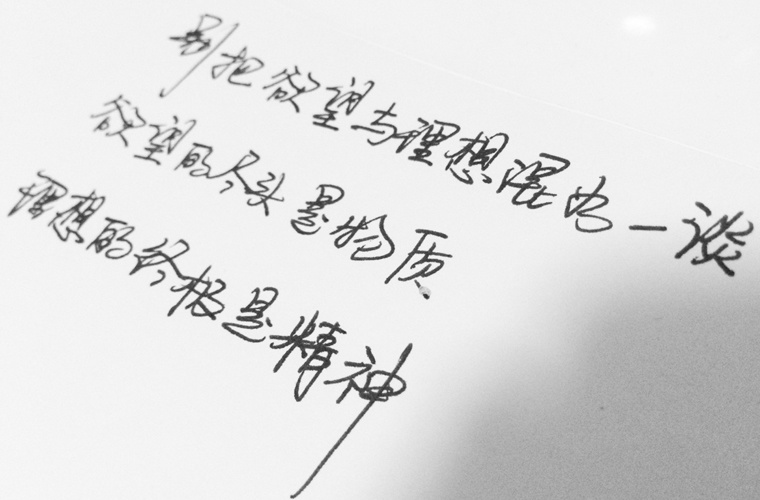 别把欲望与理想混为一谈
欲望的尽头是物质、
理想的终极是精神